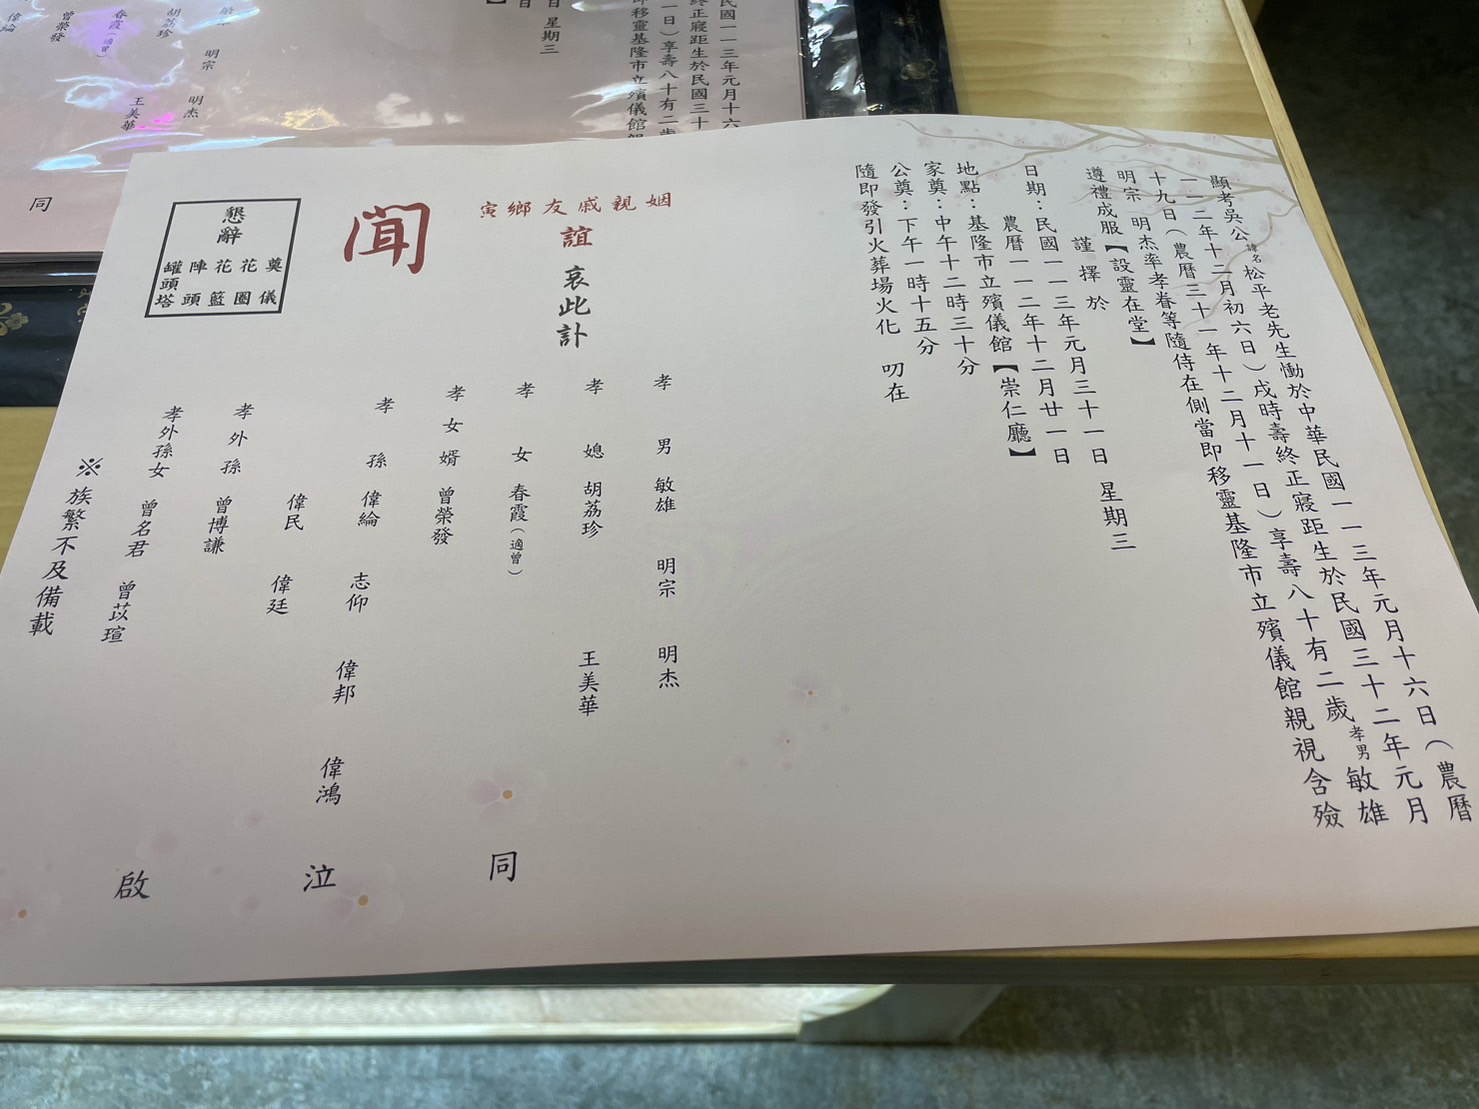 顯考吳公諱名松平老先生慟於中華民國一一三年元月十六日（農曆
一一二年十二月初六日）戌時壽終正寢距生於民國三十二年元月
十九日（農曆三十一年十二月十一日）享壽八十有二歲孝男敏雄
明宗 明杰率孝眷等隨侍在側當即移靈基隆市立殯儀館親視含殮
遵禮成服【設靈在堂】
謹擇於
日期：民國一一三年元月三十一日 星期三
農曆一一二年十二月廿一日
地點：基隆市立殯儀館【崇仁廳】
家奠：中午十二時三十分
公奠：下午一時十五分
隨即發引火葬場火化 叨在
姻親戚友鄉寅
誼 哀此訃
聞
懇辭
奠儀
花圈
花籃
陣頭
罐頭塔
孝男 敏雄 明宗 明杰
孝媳 胡荔珍 王美華
孝女 春霞（適曾）
孝女婿 曾榮發
孝孫 偉綸 志仰 偉邦 偉鴻
偉民 偉廷
孝外孫 曾博謙
孝外孫女 曾名君 曾苡瑄
※族繁不及備載
同泣啟
民國一一三年元月十六
日）享壽八十有二歲
即移靈基隆市立殯儀館
日 星期三
日
】
明宗 明杰
胡荔珍 王美華
春霞（適曾）
曾榮發
偉綸
同